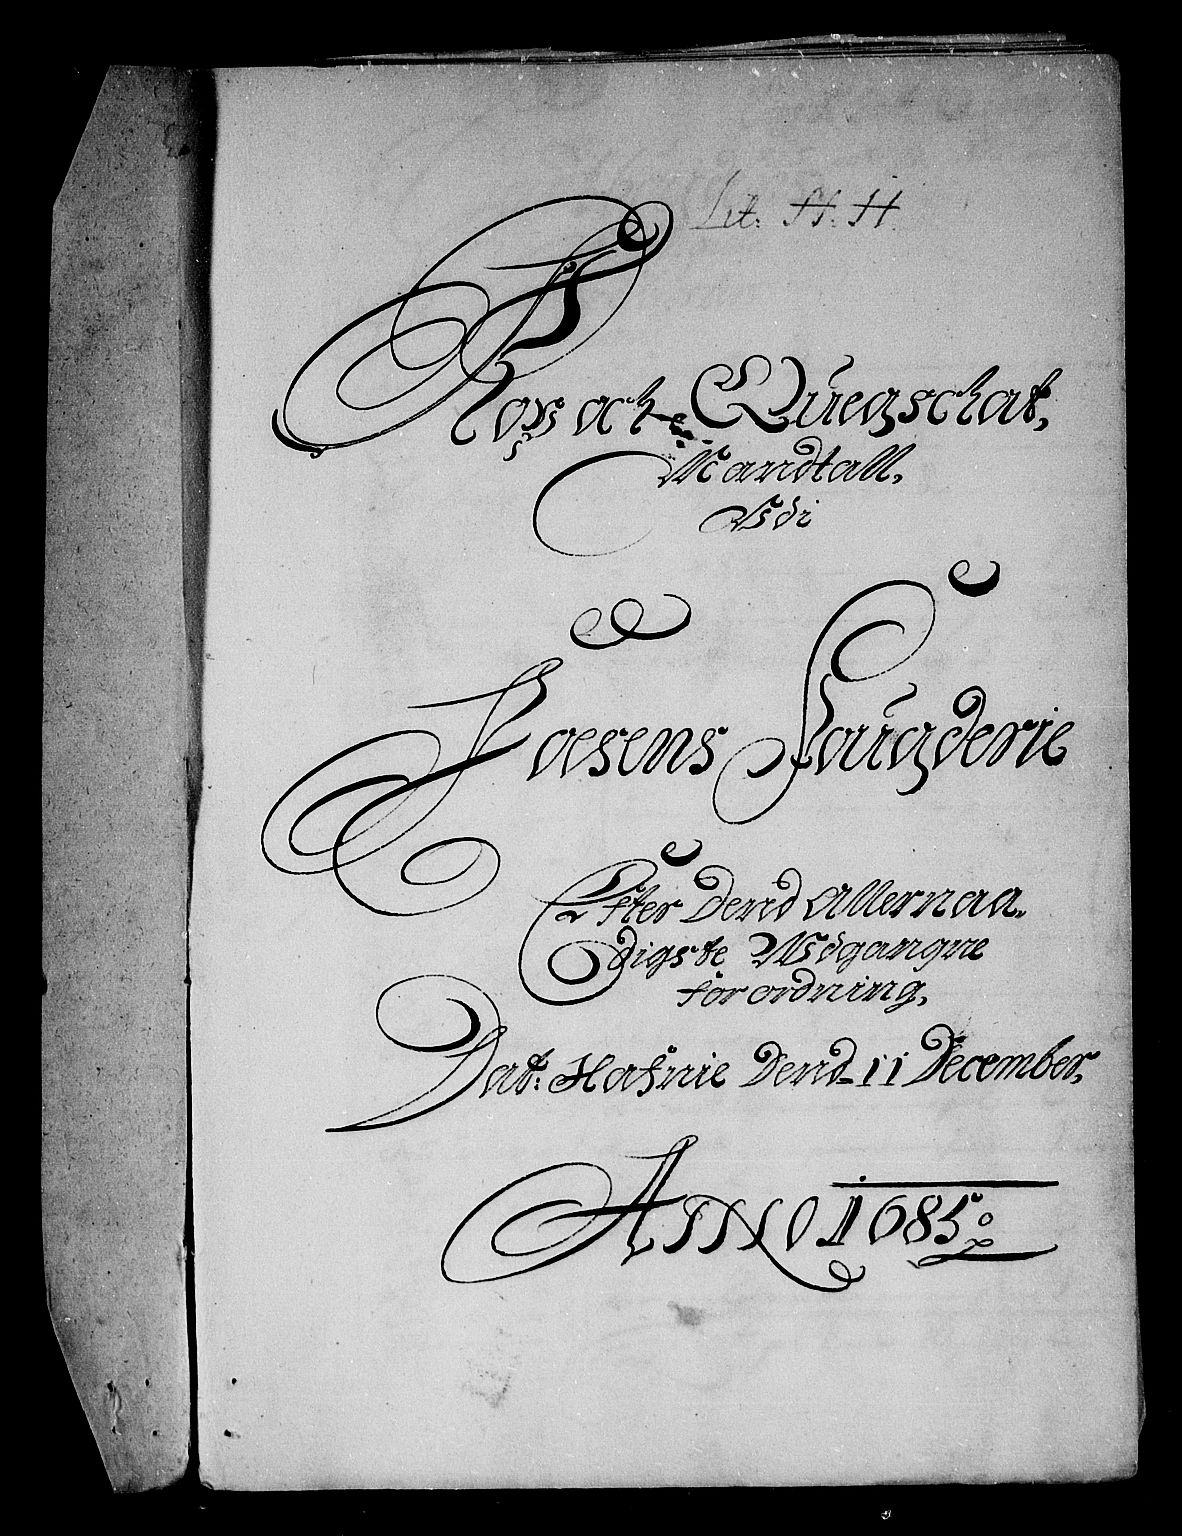 Lit: H. H.
Kop och Quegschat,
Mandtall,
Udi
Foesens Fougderie
Efter Dend Allernaa-
digste Udgangne
forordning,
Dat: Hafnie Dend 11 December,
ANNO 1685